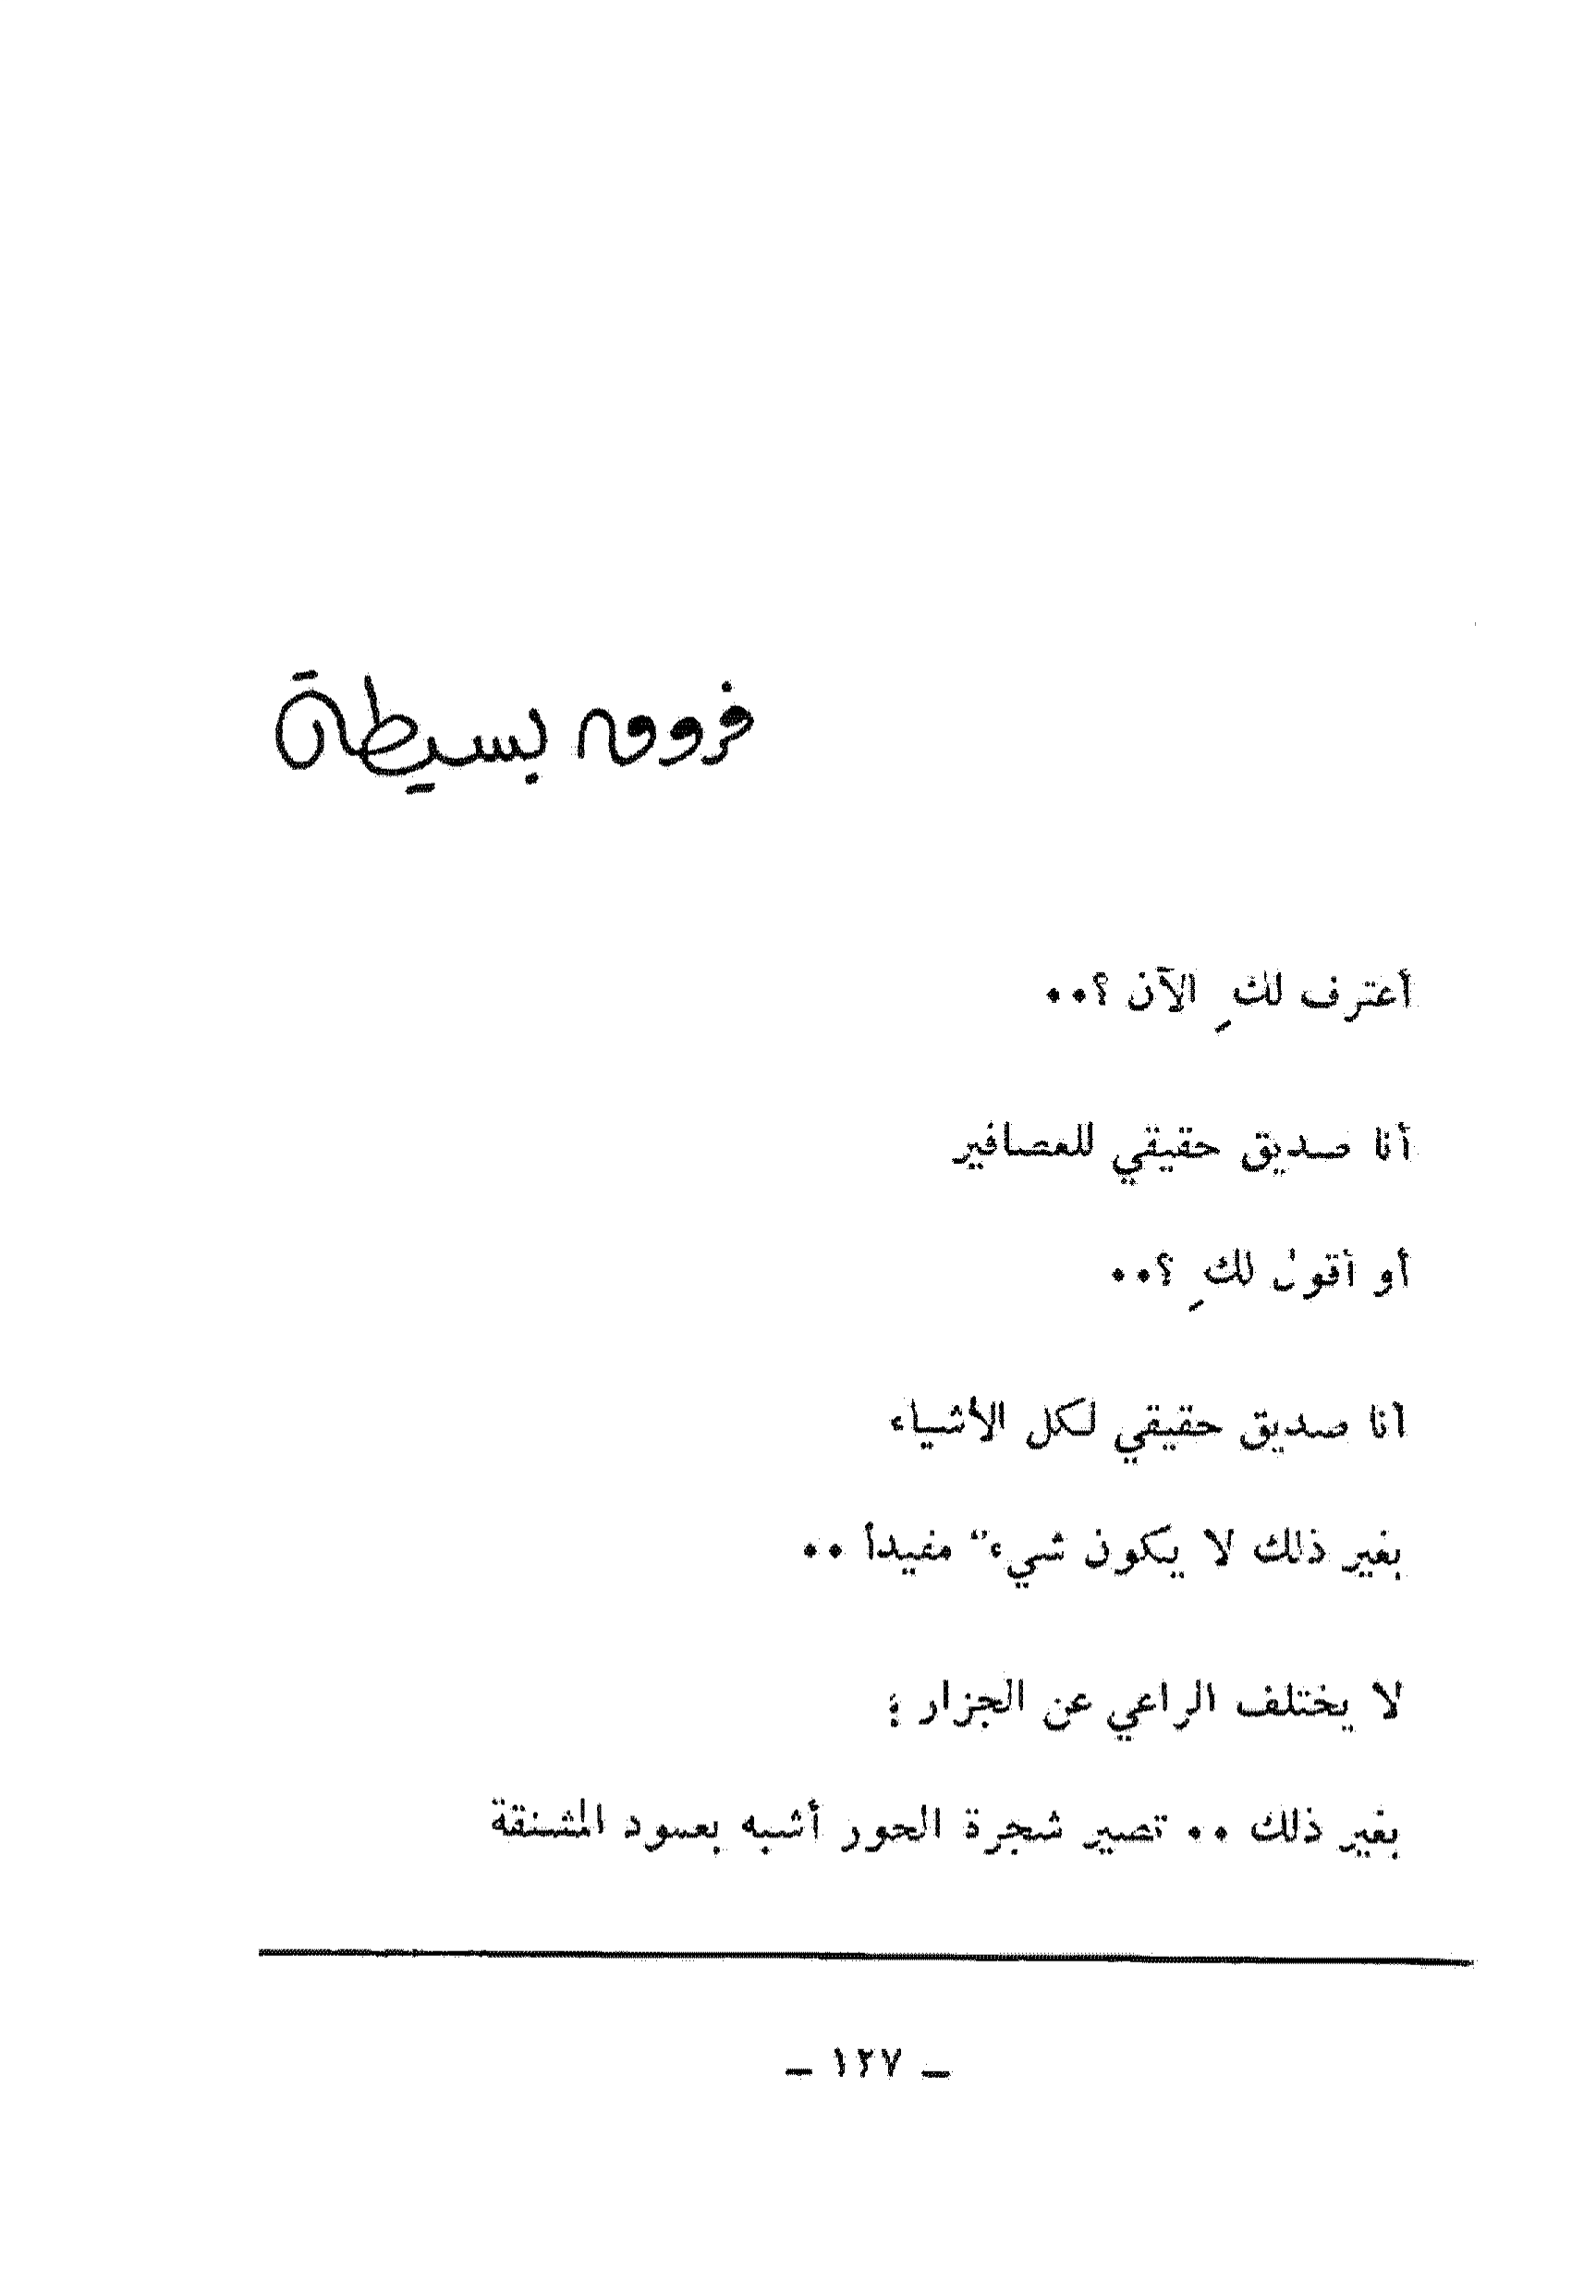 فروق بسيطة
أعترف لكِ الآن ؟..
أنا صديق حقيقي للعصافير
أو أقول لكِ ؟..
أنا صديق حقيقي لكل الأشياء
بغير ذلك لا يكون شيءٌ مفيداً ..
لا يختلف الراعي عن الجزار ؛
بغير ذلك .. تصير شجرة الحور أشبه بعمود المشنقة
– ١٢٧ –